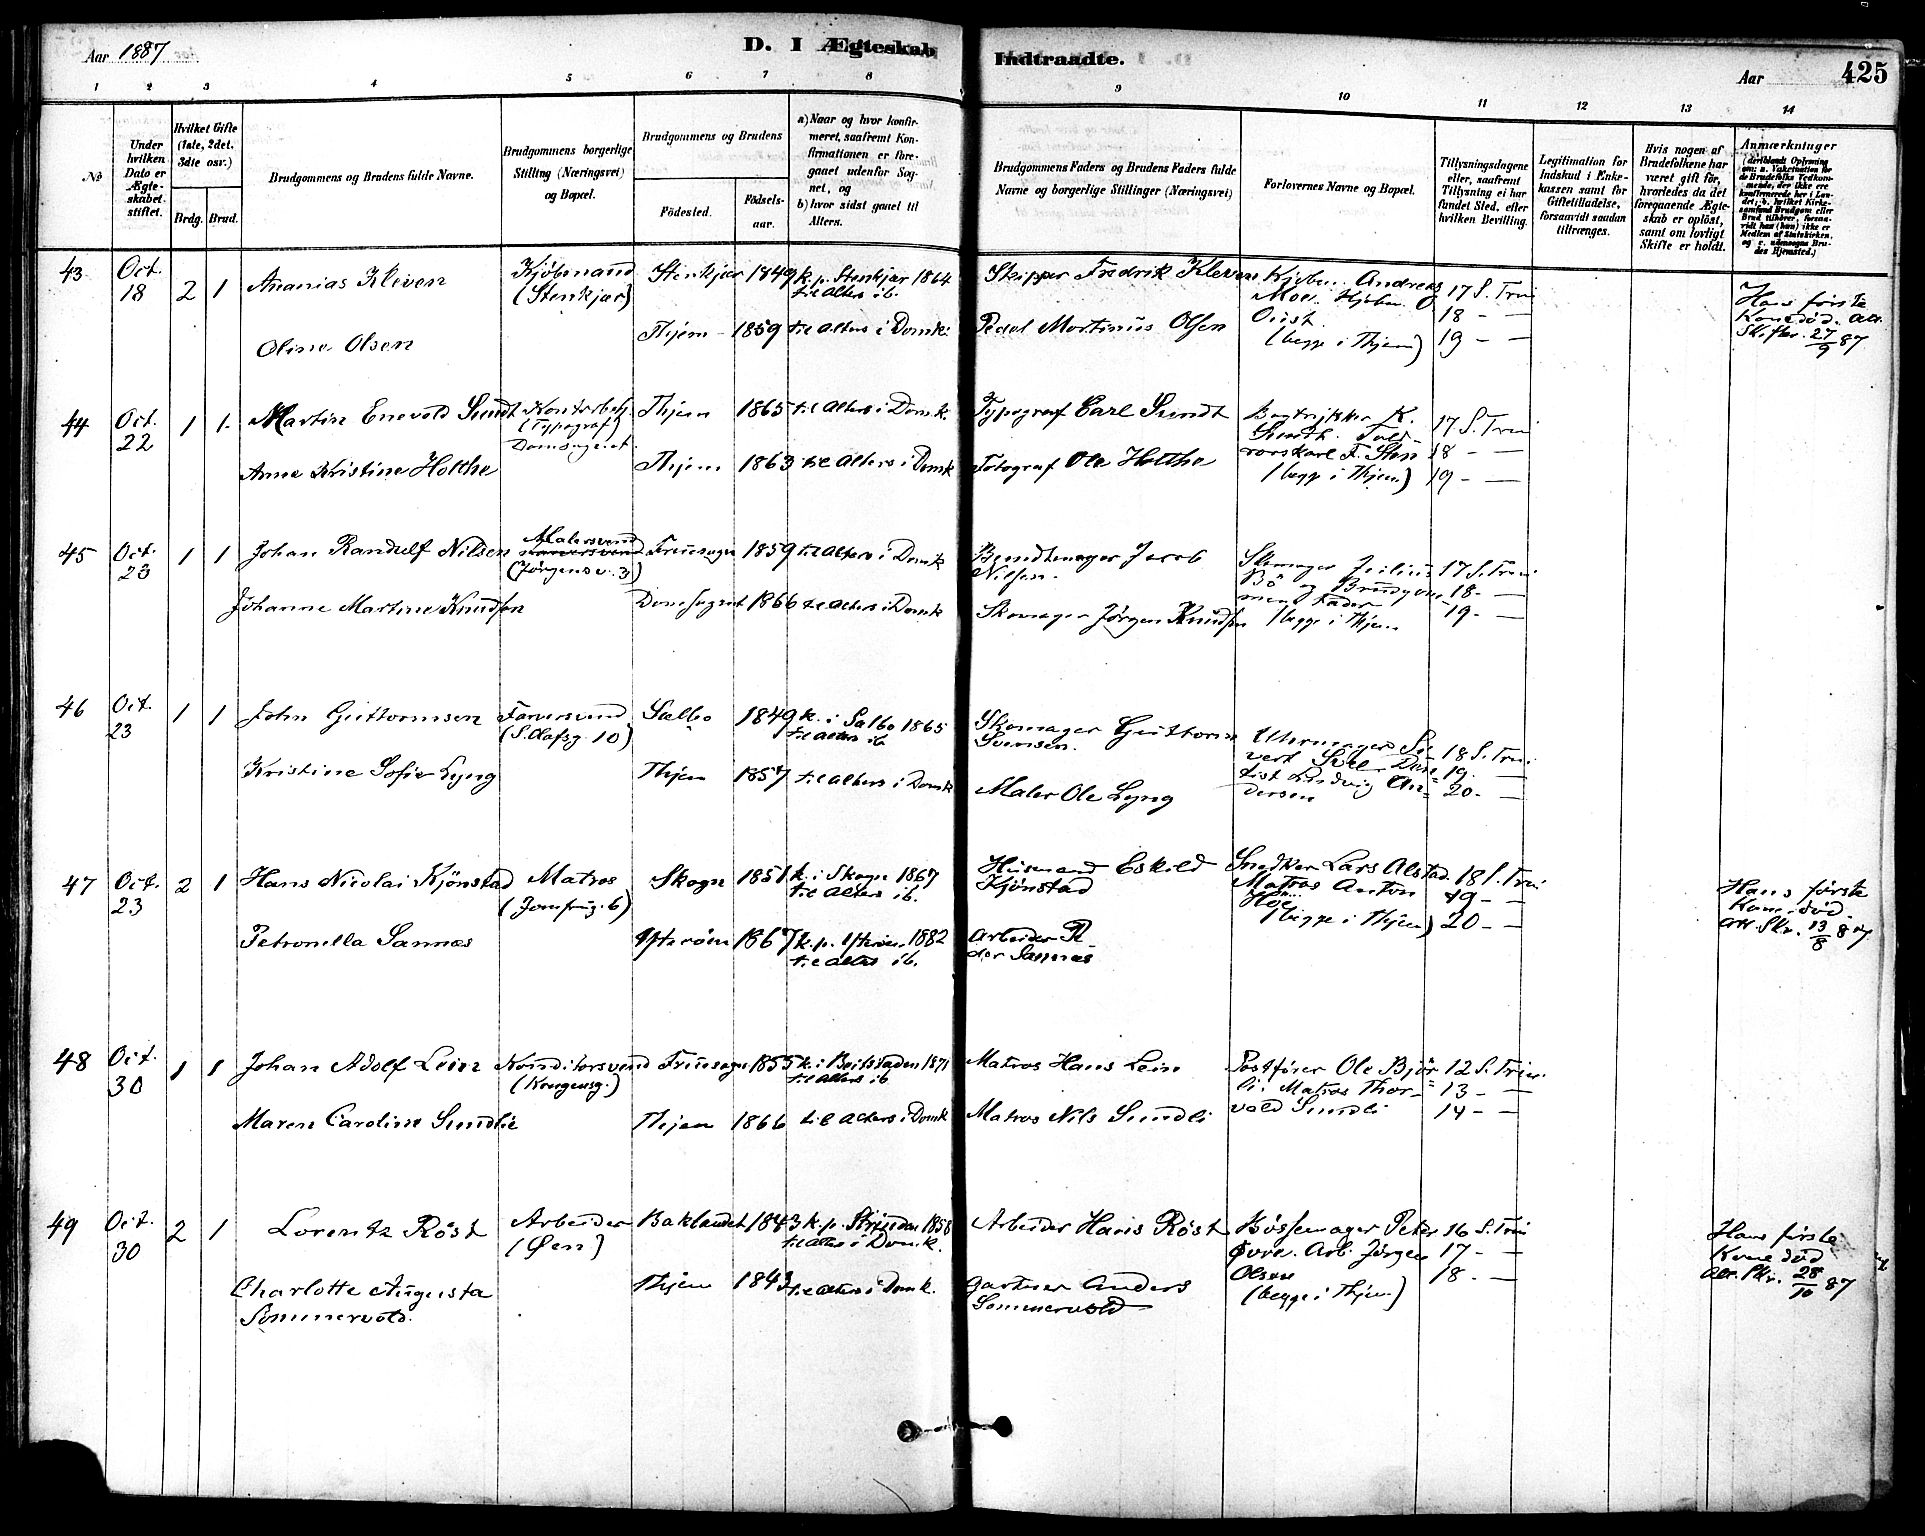 Aar 1887
D. I Ægteskab Indtraadte.
Aar 425
1 2 3 4 5 6 7 8 9 10 11 12 13 14
No
Under hvilken Dato er Ægteskabet stiftet.
Hvilket Gifte (1ste, 2det, 3die osv.)
Brdg. Brud.
Brudgommens og Brudens fulde Navne.
Brudgommens borgerlige Stilling (Næringsvei) og Bopæl.
Brudgommens og Brudens
Födested.
Födselsaar.
a) Naar og hvor konfirmeret, saafremt Konfirmationen er foregaaet udenfor Sognet, og
b) hvor sidst gaaet til Alters.
Brudgommens Faders og Brudens Faders fulde Navne og borgerlige Stillinger (Næringsvei)
Forlovernes Navne og Bopæl.
Tillysningsdagene eller, saafremt Tillysning ei har fundet Sted, efter hvilken Bevilling.
Legitimation for Indskud i Enkekassen samt for Giftetilladelse, forsaavidt saadan tiltrænges.
Hvis nogen af Brudefolkene har været gift før, hvorledes da det foregaaende Ægteskab er oplöst, samt om lovligt Skifte er holdt.
Anmærkninger
43 Oct. 18 2 1 Ananias Kleven
Kjöbmand (Stenkjær)
Stenkjær 1849 k. p. Stenkjær 1864
til alters ib.
Skipper Fredrik Kleven
Kjöbm. Andreas Moe. Kjöbm. O
(begge i Thjem)
17 S. Trin
18 - —
19 - —
Hans første Kone död. Att. Skifter. 27/9 87
Oline Olsen
Thjem 1859 til alters i Domk.
Pedel Mortinus Olsen
44 Oct. 22 1 1 Martin Enevold Sundt
(Typograf)
Domsognet
Thjem 1865 til alters i Domk.
Typograf Carl Sundt
Bogtrykker K. Sundt.
(begge i Thjem)
17 S. Trin
18 - —
19 - —
Anna Kristine Holthe
Thjem 1863 til alters i Domk
Fotograf Ole Holthe
45 Oct. 23 1 1 Johan Randulf Nilsen
Malersvend
(Jörgensv. 3)
Fruesogn 1859 til alters i Domk
Bundtmager Jacob Nilsen.
Skomager Julius Bö og Brudgommens Fader
(begge i Thjem
17 S. Trin
18 - —
19 - —
Johanne Martine Knudsen
Domsognet 1866 til alters i Domk
Skomager Jörgen Knudsen
46 Oct. 23 1 1 John Guttormsen
Farversvend
(S. Olafsg. 10)
Sælbo 1849 k. i Sælbo 1865
til alters ib
Skomager Guttorm Svensen.
Uhrmager Sivert
Ludvig Andersen
18 S. Trin.
19 - —
20 - —
Kristine Sofie Lyng
Thjem 1857 til alters i Domk
Maler Ole Lyng
47 Oct. 23 2 1 Hans Nicolai Kjönstad
Matros
(Jomfrug. 6)
Skogn 1851 k. i Skogn 1867
til alters ib.
Husmand Eskild Kjönstad
Snedker Lars Alstad.
Matros Anton Höe
(begge i Thjem)
18 S. Trin
19 - —
20 - —
Hans förste Kone död. Att. Skr. 13/8 87
Petronella Sannæs
Ytterøen 1867 k. p. Ytterøen 1882
til alters ib.
Arbeider Peder Sannæs
48 Oct. 30 1 1 Johan Adolf Lein
Konditorsvend
(Kongensg.)
Fruesogn 1855 k. i Beitstaden 1871
til alters ib
Matros Hans Lein
Postförer Ole Björli. Matros Thorvald Sundli
12 S. Trin.
13 - —
14 - —
Maren Caroline Sundlie
Thjem 1866 til alters i Domk
Matros Nils Sundli
49 Oct. 30 2 1 Lorentz Röst
Arbeider
(Øen)
Baklandet 1843 k. p. Strinden 1858
til alters i Domk.
Arbeider Hans Röst
Bössemager Peter Øvre. Arb. Jörgen Olsen
(begge i Thjem)
16 S. Trin
17 - —
18 - —
Hans förste Kone död
Att. Skr. 28/10 87
Charlotte Augusta Sommervold.
Thjem 1843 til alters i Domk.
Gartner Anders Sommervold